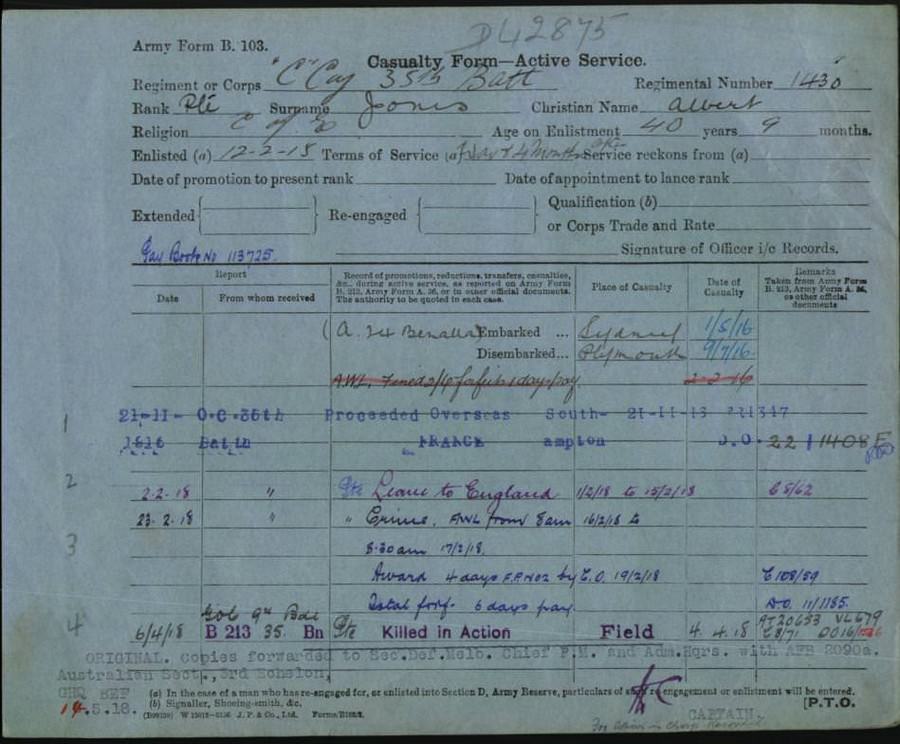 DL42875
Army Form B. 103.
Casualty Form—Active Service.
Regiment or Corps "C" Coy 35th Batt Regimental Number 1430
Rank Pte Surname Jones Christian Name Albert
Religion C of E Age on Enlistment 40 years 9 months.
Enlisted (a) 12-2-15 Terms of Service (a) 4 Months Service reckons from (a)
Date of promotion to present rank Date of appointment to lance rank
Extended Re-engaged Qualification (b)
or Corps Trade and Rate
Pay Book No 113725 Signature of Officer i/c Records.
Report
Date From whom received
Record of promotions, reductions, transfers, casualties, &c., during active service, as reported on Army Form B. 213, Army Form A. 36, or in other official documents. The authority to be quoted in each case.
Place of Casualty
Date of Casualty
Remarks
Taken from Army Form B. 213, Army Form A. 36, or other official documents
(A. 24 Benalla) Embarked ... Sydney 1/5/16
Disembarked... Plymouth 9/7/16
A.W.L. Fined 2/6 forfeits 1 days pay.
1 21-11- O.C. 35th Proceeded Overseas South- 21-11-16
1616 Battn FRANCE ampton D.O. 22 1408E
2
2.2.18 " Pte Leave to England 1/2/18 to 15/2/18 C8/62
23.2.18 " " Crime. AWL from 8am 16/2/18 to
3 8.30am 17/2/18.
Award 4 days F.P.No2 by C.O. 19/2/18 C108/59
Total forf. 6 days pay. D.O. 11/1185.
4 6/4/18 B 213 35. Bn Pte Killed in Action Field 4.4.18
ORIGINAL. copies forwarded to Sec.Def.Melb. Chief P.M. and Adm.Hqrs. with AFB 2090a.
Australian Sect., 3rd Echelon,
GHQ BEF
14.5.18.
(a) In the case of a man who has re-engaged for, or enlisted into Section D, Army Reserve, particulars of such re-engagement or enlistment will be entered.
(b) Signaller, Shoeing-smith, &c.
[P.T.O.
J. P. & Co., Ltd.
CAPTAIN.